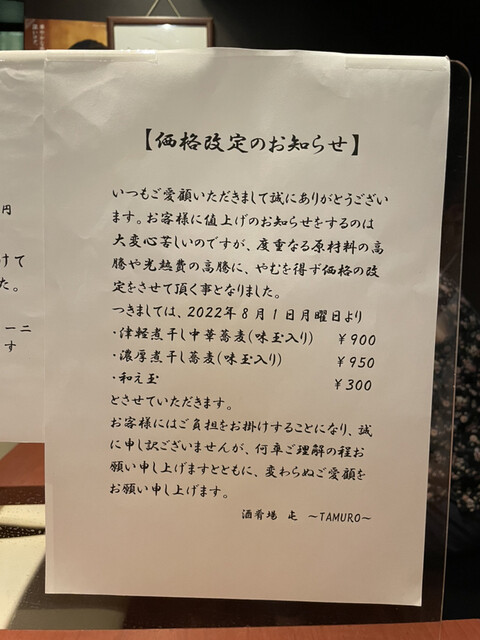 【価格改定のお知らせ】
いつもご愛顧いただきまして誠にありがとうござい
ます。お客様に値上げのお知らせをするのは
大変心苦しいのですが、度重なる原材料の高
騰や光熱費の高騰に、やむを得ず価格の改
定をさせて頂く事となりました。
つきましては、2022年8月1日月曜日より
・津軽煮干し中華蕎麦(味玉入り) ￥900
・濃厚煮干し蕎麦(味玉入り) ￥950
・和え玉 ￥300
とさせていただきます。
お客様にはご負担をお掛けすることになり、誠
に申し訳ございませんが、何卒ご理解の程お
願い申し上げますとともに、変わらぬご愛顧を
お願い申し上げます。
酒肴場 屯 ～TAMURO～
円
けて
た。
一二
す